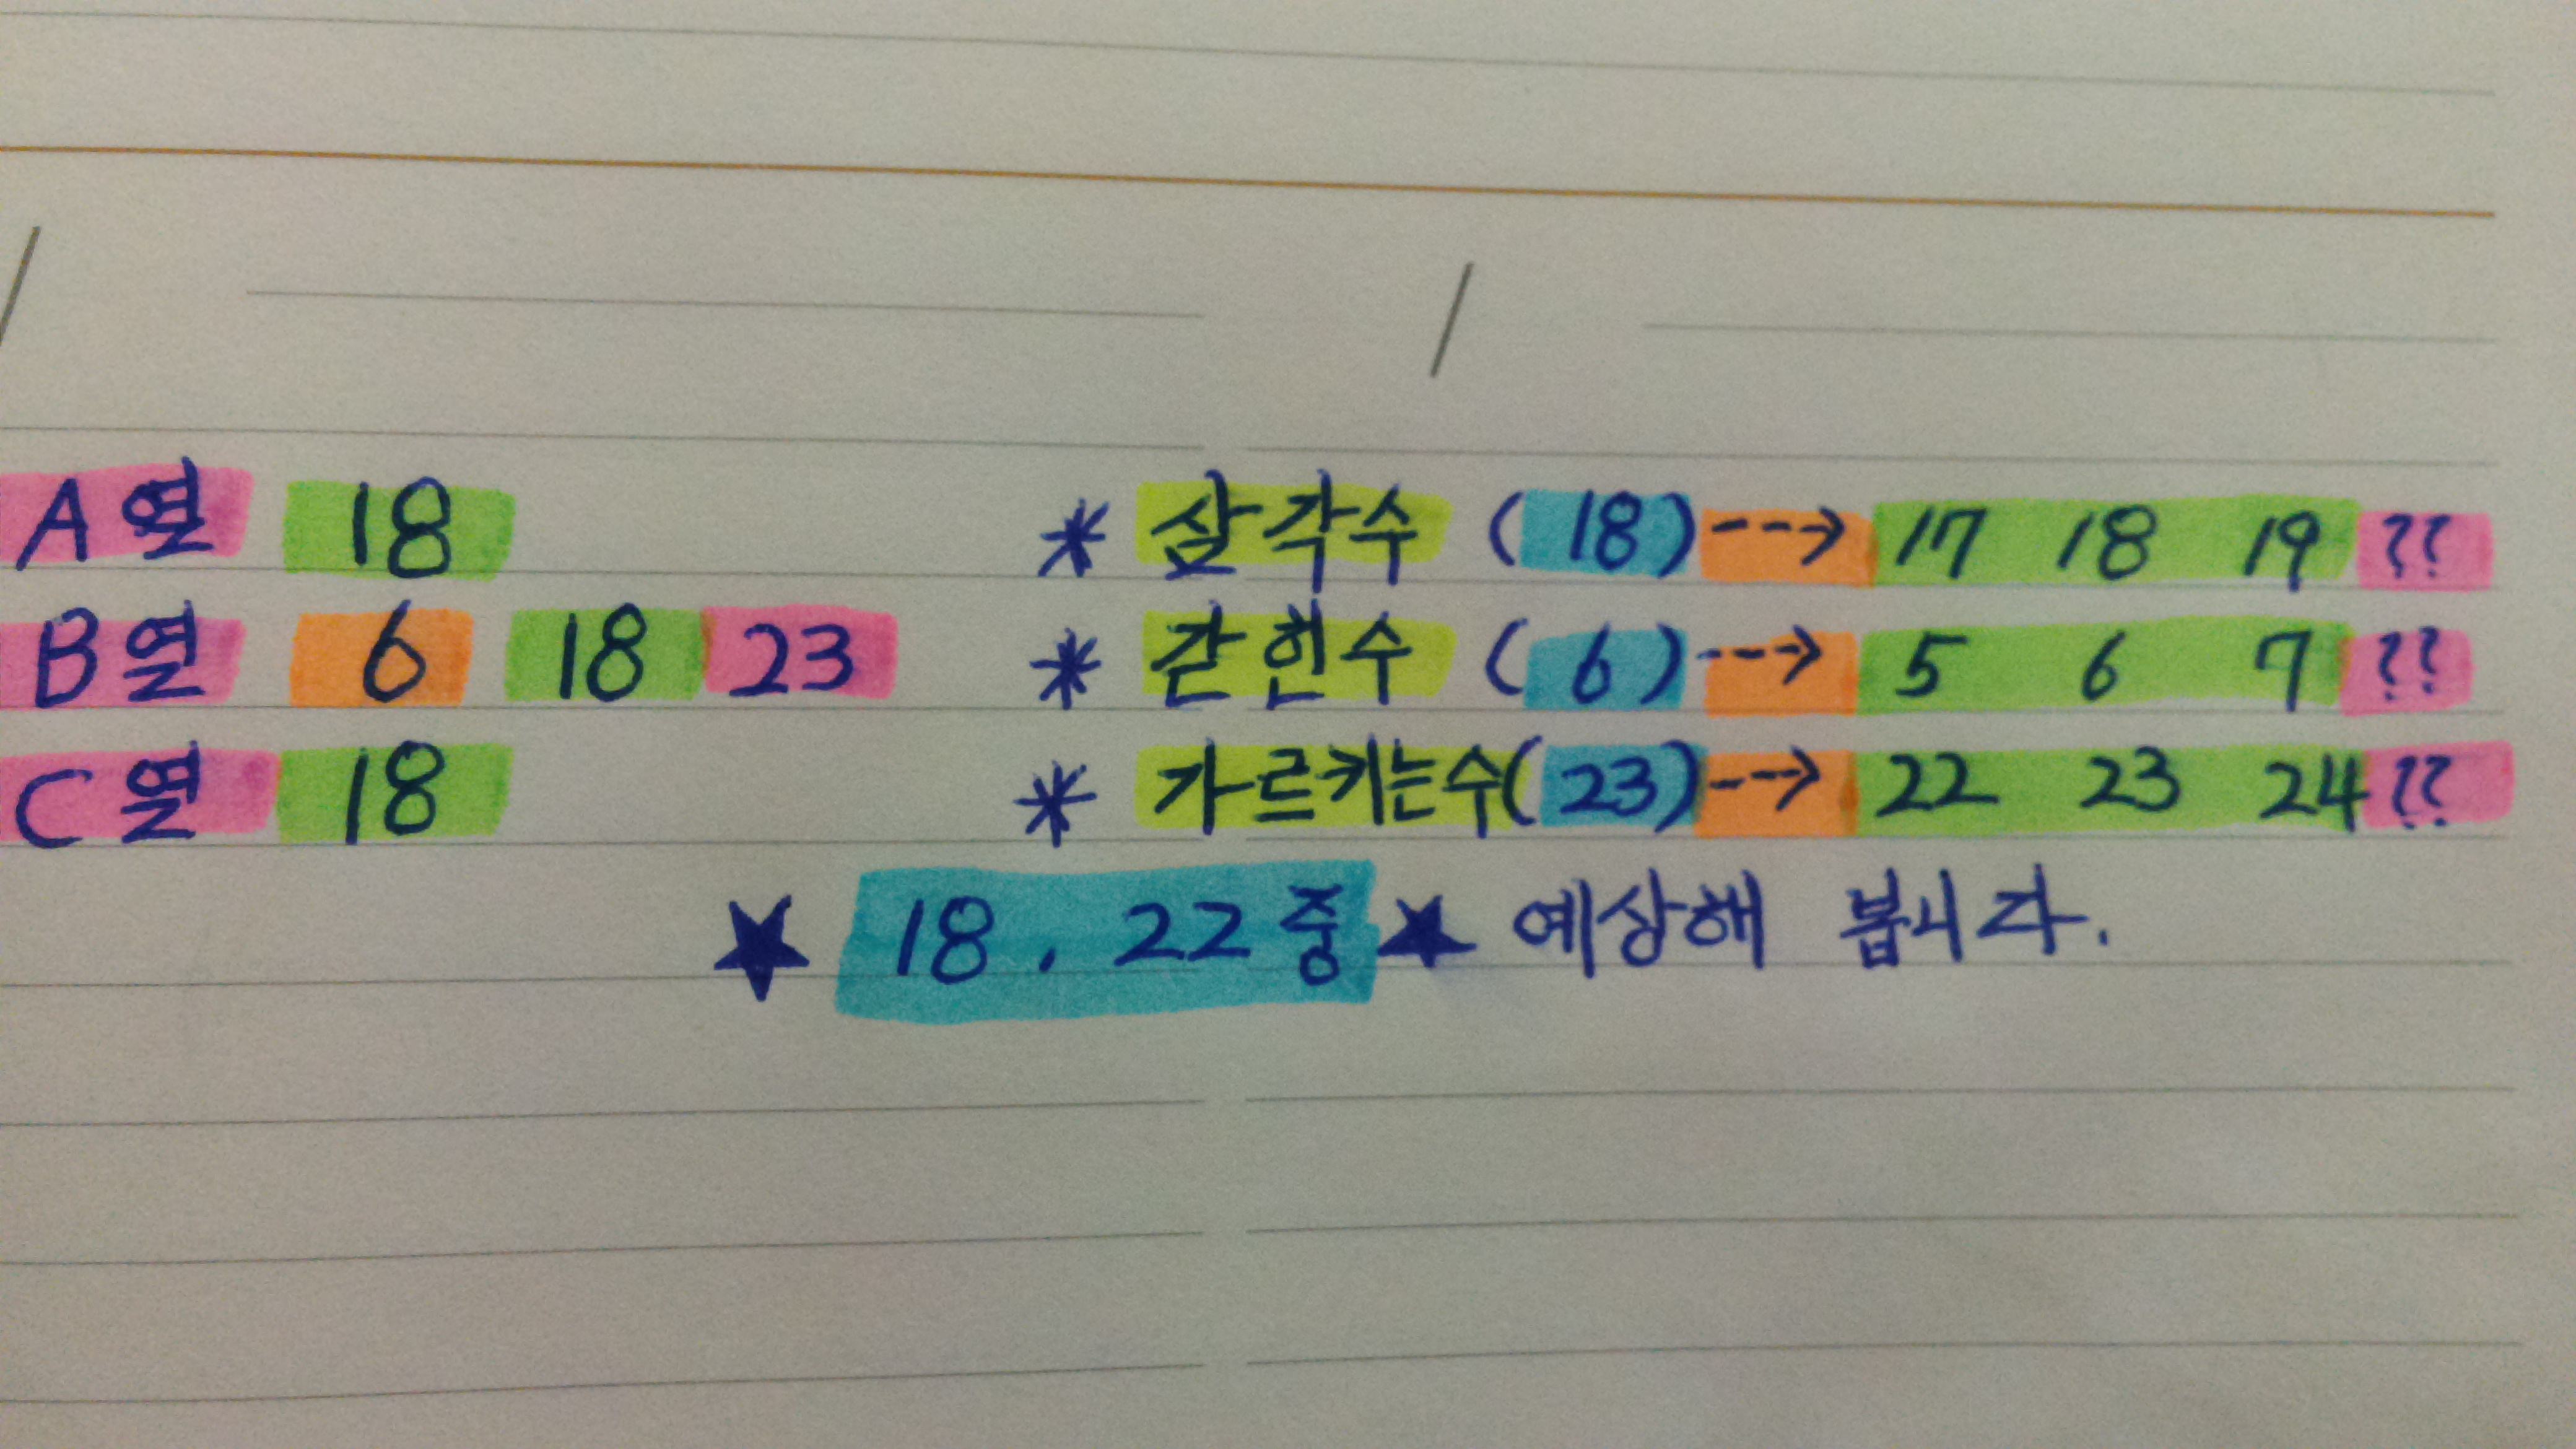 A열 18 * 삼각수 (18) ---> 17 18 19 ??
B열 6 18 23 * 갇힌수 (6) ---> 5 6 7 ??
C열 18 * 가르키는수(23) ---> 22 23 24 ??
★ 18. 22 중 ★ 예상해 봅니다.